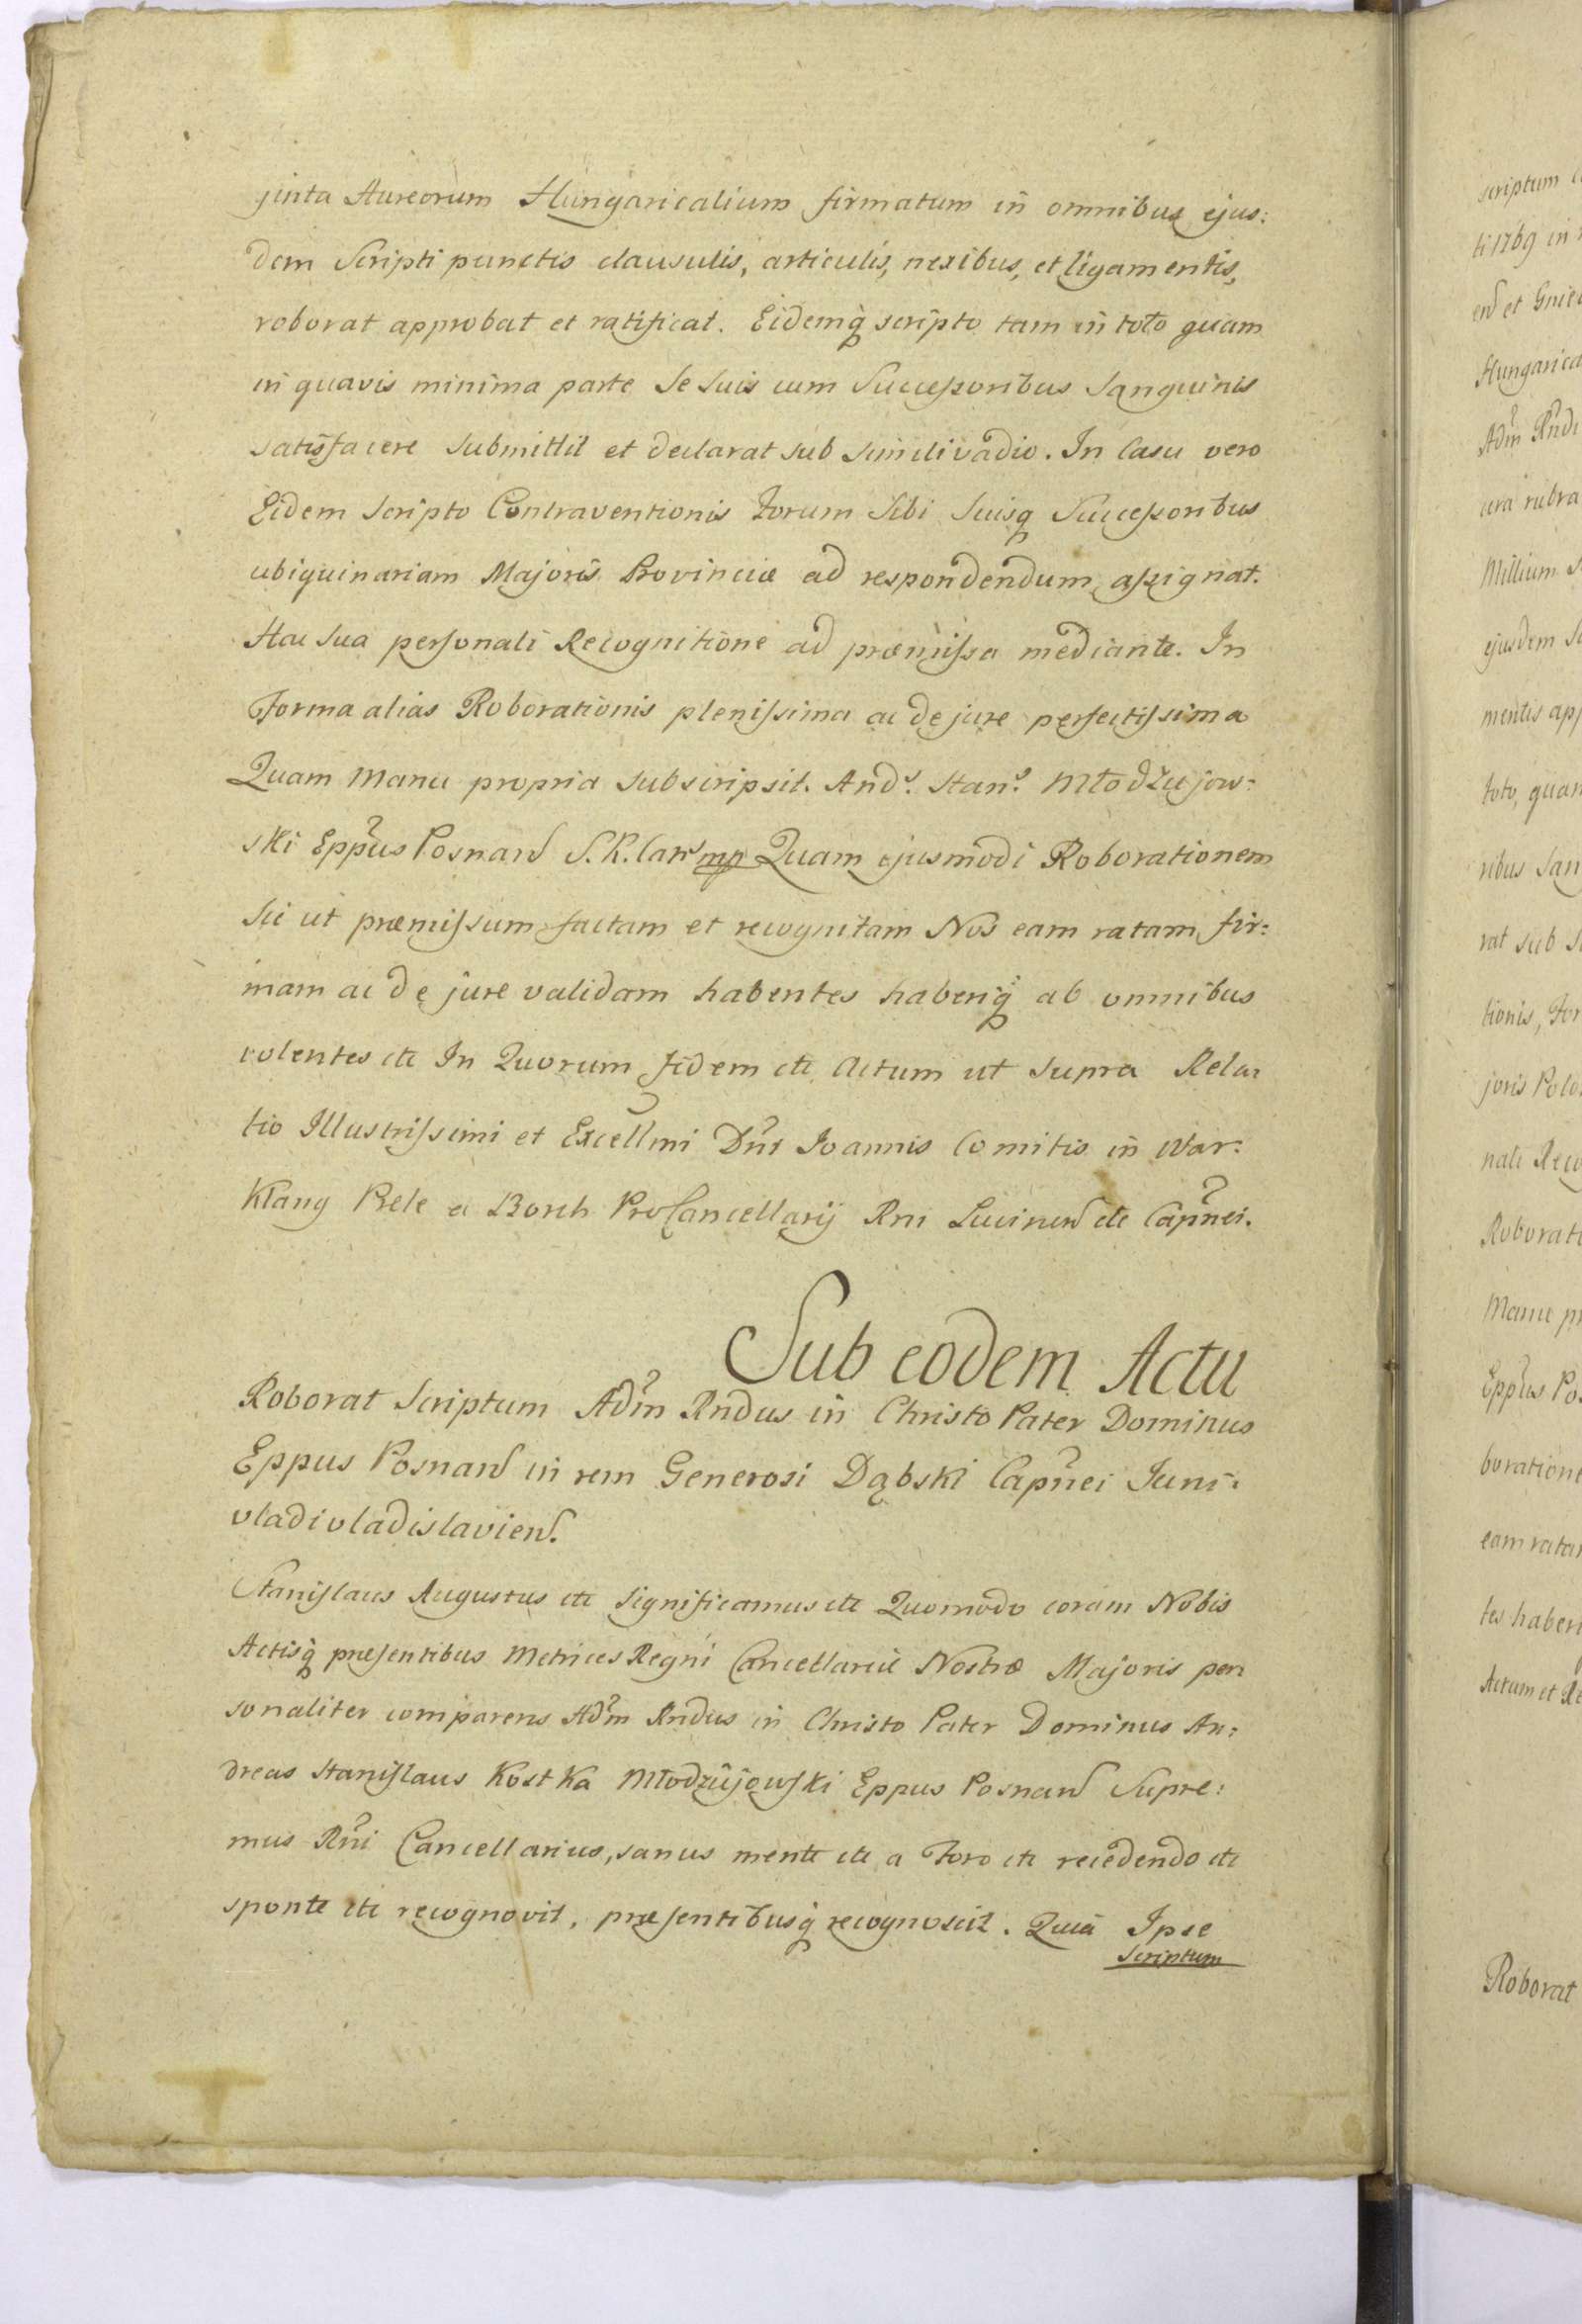 jinta Aureorum Hungaricalium firmatum in omnibus ejus:
dem Scripti punctis clausulis, articulis, nexibus, et ligamentis,
roborat approbat et ratificat. Eidemq̀ scripto tam in toto quam
in quavis minima parte Se Suis cum Succeſsoribus Sanguinis
satisfacere Submittit et declarat sub simili vadio. In Casu vero
Eidem Scripto Contraventionis Forum Sibi Suisq Succeſsoribus
ubiquinariam Majoris Provinciæ ad respondendum aſsignat.
Hac Sua perſonali Recognitione ad præmiſsa mediante. In
Forma alias Roborationis pleniſsima ac de jure perfectiſsima
Quam Manu propria Subscripsit. Andˢ. Stanˢ. Młodzujow:
ski Epp̃us Posnan̄ S. R. Can̄s mp Quam ejusmodi Roborationem
Sic ut præmiſsum factam et recognitam Nos eam ratam, fir:
mam ac de jure validam habentes haberiq̀ ab omnibus
volentes etc In Quorum fidem etc Actum ut Supra Rela
tio Illustriſsimi et Excell̃mi Dn̄i Joannis Comitis in War:
Klang Prele a Borch ProCancellarij Rni Lucinen̄ etc Cap̃nei.
Sub eodem Actu
Roborat Scriptum Adm̃ Rndus in Christo Pater Dominus
Eppus Posnan̄ in rem Generosi Dąbski Cap̃nei Juni:
vladivladislavien̄.
Staniſlaus Augustus etc Significamus etc Quomodo coram Nobis
Actisq̀ præſentibus Metrices Regni Cancellariæ Nostræ Majoris per
sonaliter comparens Adm̃ Rndus in Christo Pater Dominus An:
dreas Staniſlaus Kostka Młodzujowſki Eppus Posnan̄ Supre:
mus Rñi Cancellarius, sanus mente etc a Foro etc recedendo etc
sponte etc recognovit, præſentibusq̀ recognoscit. Quia Ipse
Scriptum